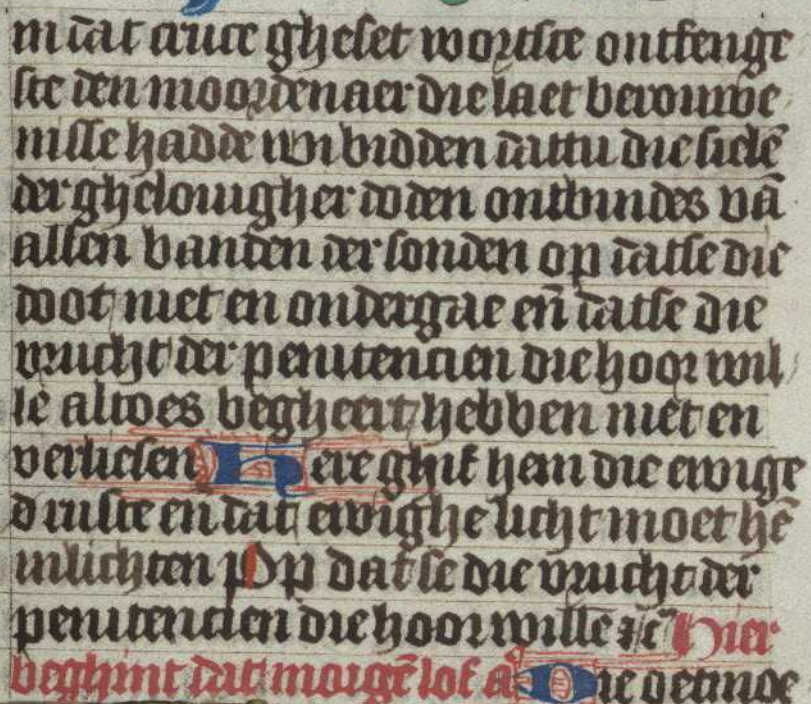 in dat cruce gheset wortste ontfenge
ste den moordenaer die laet berouwe
nisse hadde wi bidden dattu die sielē
der ghelouigher doden ontbindes vā
allen banden der sonden op datse die
doot niet en ondergae eñ datse die
vrucht der penitencien die hoor wil
le altoes begheert hebben niet en
verliesen Here ghif hem die ewige
d ruste en dat ewighe licht moet hē
inlichten Op dat se die vrucht der
penitencien die hoor wille ⁊c̄ Hier
beghint dat morgē lof a Die